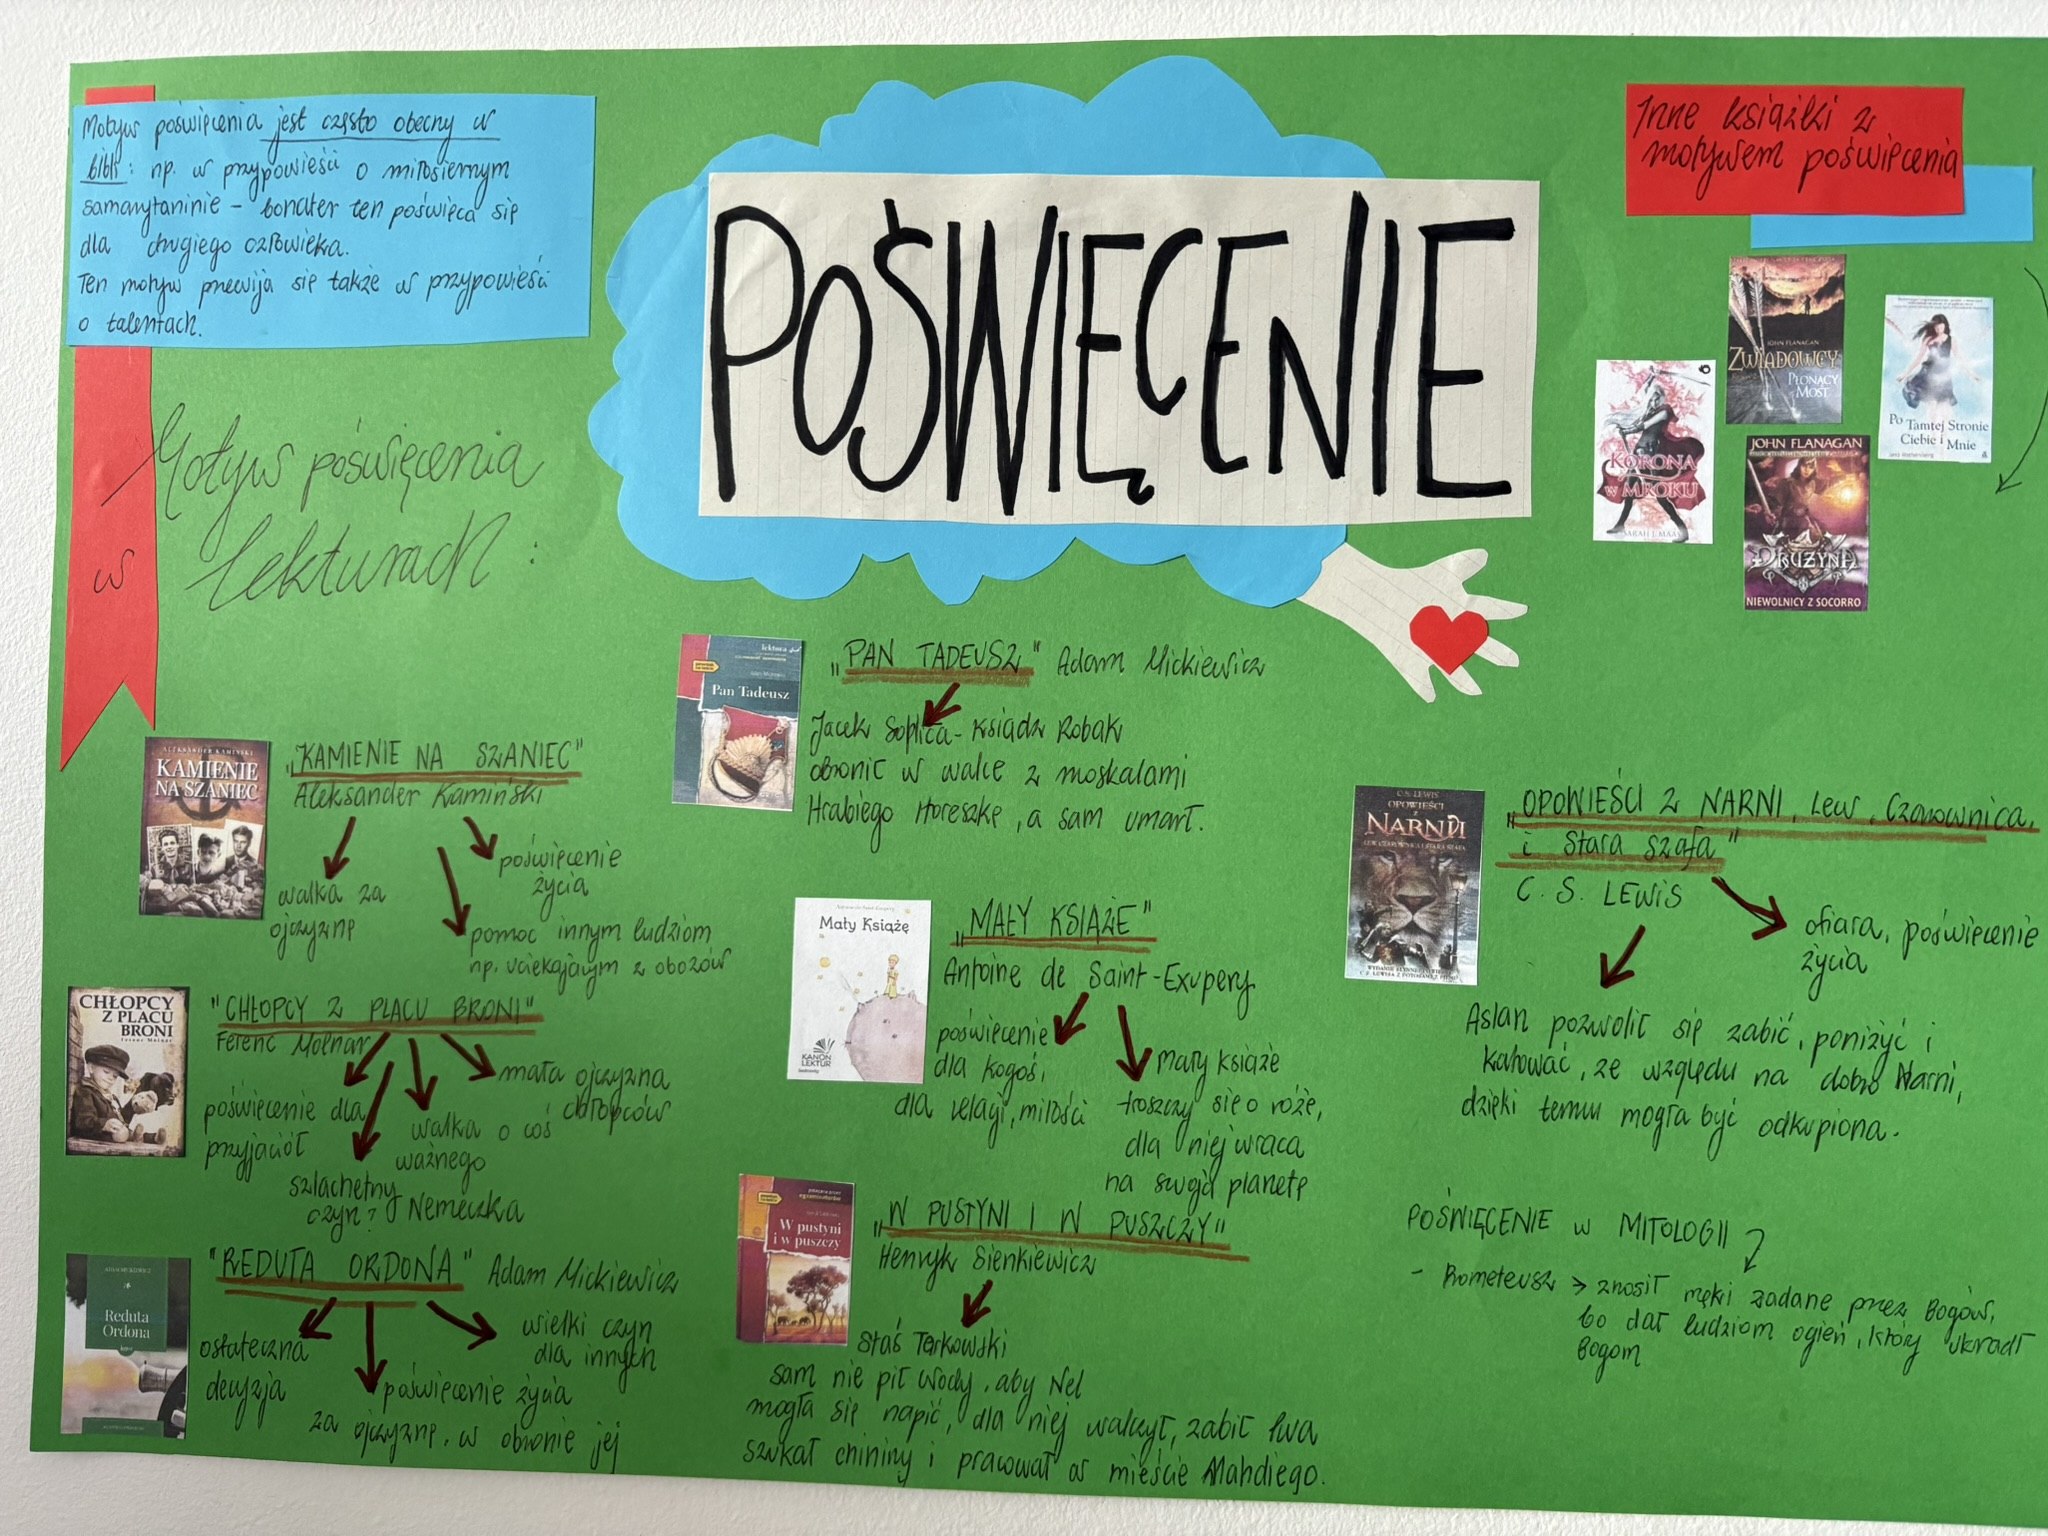 Motyw poświęcenia jest często obecny w
bibli: np. w przypowieści o miłosiernym
samarytaninie - bohater ten poświęca się
dla drugiego człowieka.
Ten motyw przewija się także w przypowieści
o talentach.
POŚWIĘCENIE
Inne książki z
motywem poświęcenia
JOHN FLANAGAN
ZWIADOWCY
PŁONĄCY
MOST
Po Tamtej Stronie
Ciebie i Mnie
KORONA
W MROKU
SARAH J. MAAS
JOHN FLANAGAN
DRUŻYNA
NIEWOLNICY Z SOCORRO
Motyw poświęcenia
w lekturach:
ALEKSANDER KAMIŃSKI
KAMIENIE
NA SZANIEC
"KAMIENIE NA SZANIEC"
Aleksander Kamiński
walka za
ojczyznę
poświęcenie
życia
pomoc innym ludziom
np. uciekającym z obozów
CHŁOPCY
Z PLACU
BRONI
Ferenc Molnar
"CHŁOPCY Z PLACU BRONI"
Ferenc Molnar
poświęcenie dla
przyjaciół
szlachetny
czyn? Nemeczka
walka o coś
ważnego
mała ojczyzna
chłopców
Reduta
Ordona
"REDUTA ORDONA" Adam Mickiewicz
ostateczna
decyzja
poświęcenie życia
za ojczyznę, w obronie jej
wielki czyn
dla innych
lektura
Pan Tadeusz
"PAN TADEUSZ" Adam Mickiewicz
Jacek Soplica - Ksiądz Robak
obronił w walce z moskalami
Hrabiego Horeszkę, a sam umarł.
Mały Książę
KANON
LEKTUR
"MAŁY KSIĄŻE"
Antoine de Saint-Exupery
poświęcenie
dla kogoś,
dla relacji, miłości
Mały książe
troszczy się o róże,
dla niej wraca
na swoją planetę
W pustyni
i w puszczy
"W PUSTYNI I W PUSZCZY"
Henryk Sienkiewicz
Staś Tarkowski
sam nie pił wody, aby Nel
mogła się napić, dla niej walczył, zabił lwa
szukał chininy i pracował w mieście Mahdiego.
C.S. LEWIS
OPOWIEŚCI
Z
NARNII
LEW, CZAROWNICA I STARA SZAFA
"OPOWIEŚCI Z NARNI, Lew, Czarownica,
i Stara szafa"
C. S. LEWIS
ofiara, poświęcenie
życia
Aslan pozwolił się zabić, poniżyć i
katować, ze względu na dobro Narni,
dzięki temu mogła być odkupiona.
POŚWIĘCENIE w MITOLOGII
- Prometeusz > znosił męki zadane przez Bogów,
bo dał ludziom ogień, który ukradł
Bogom